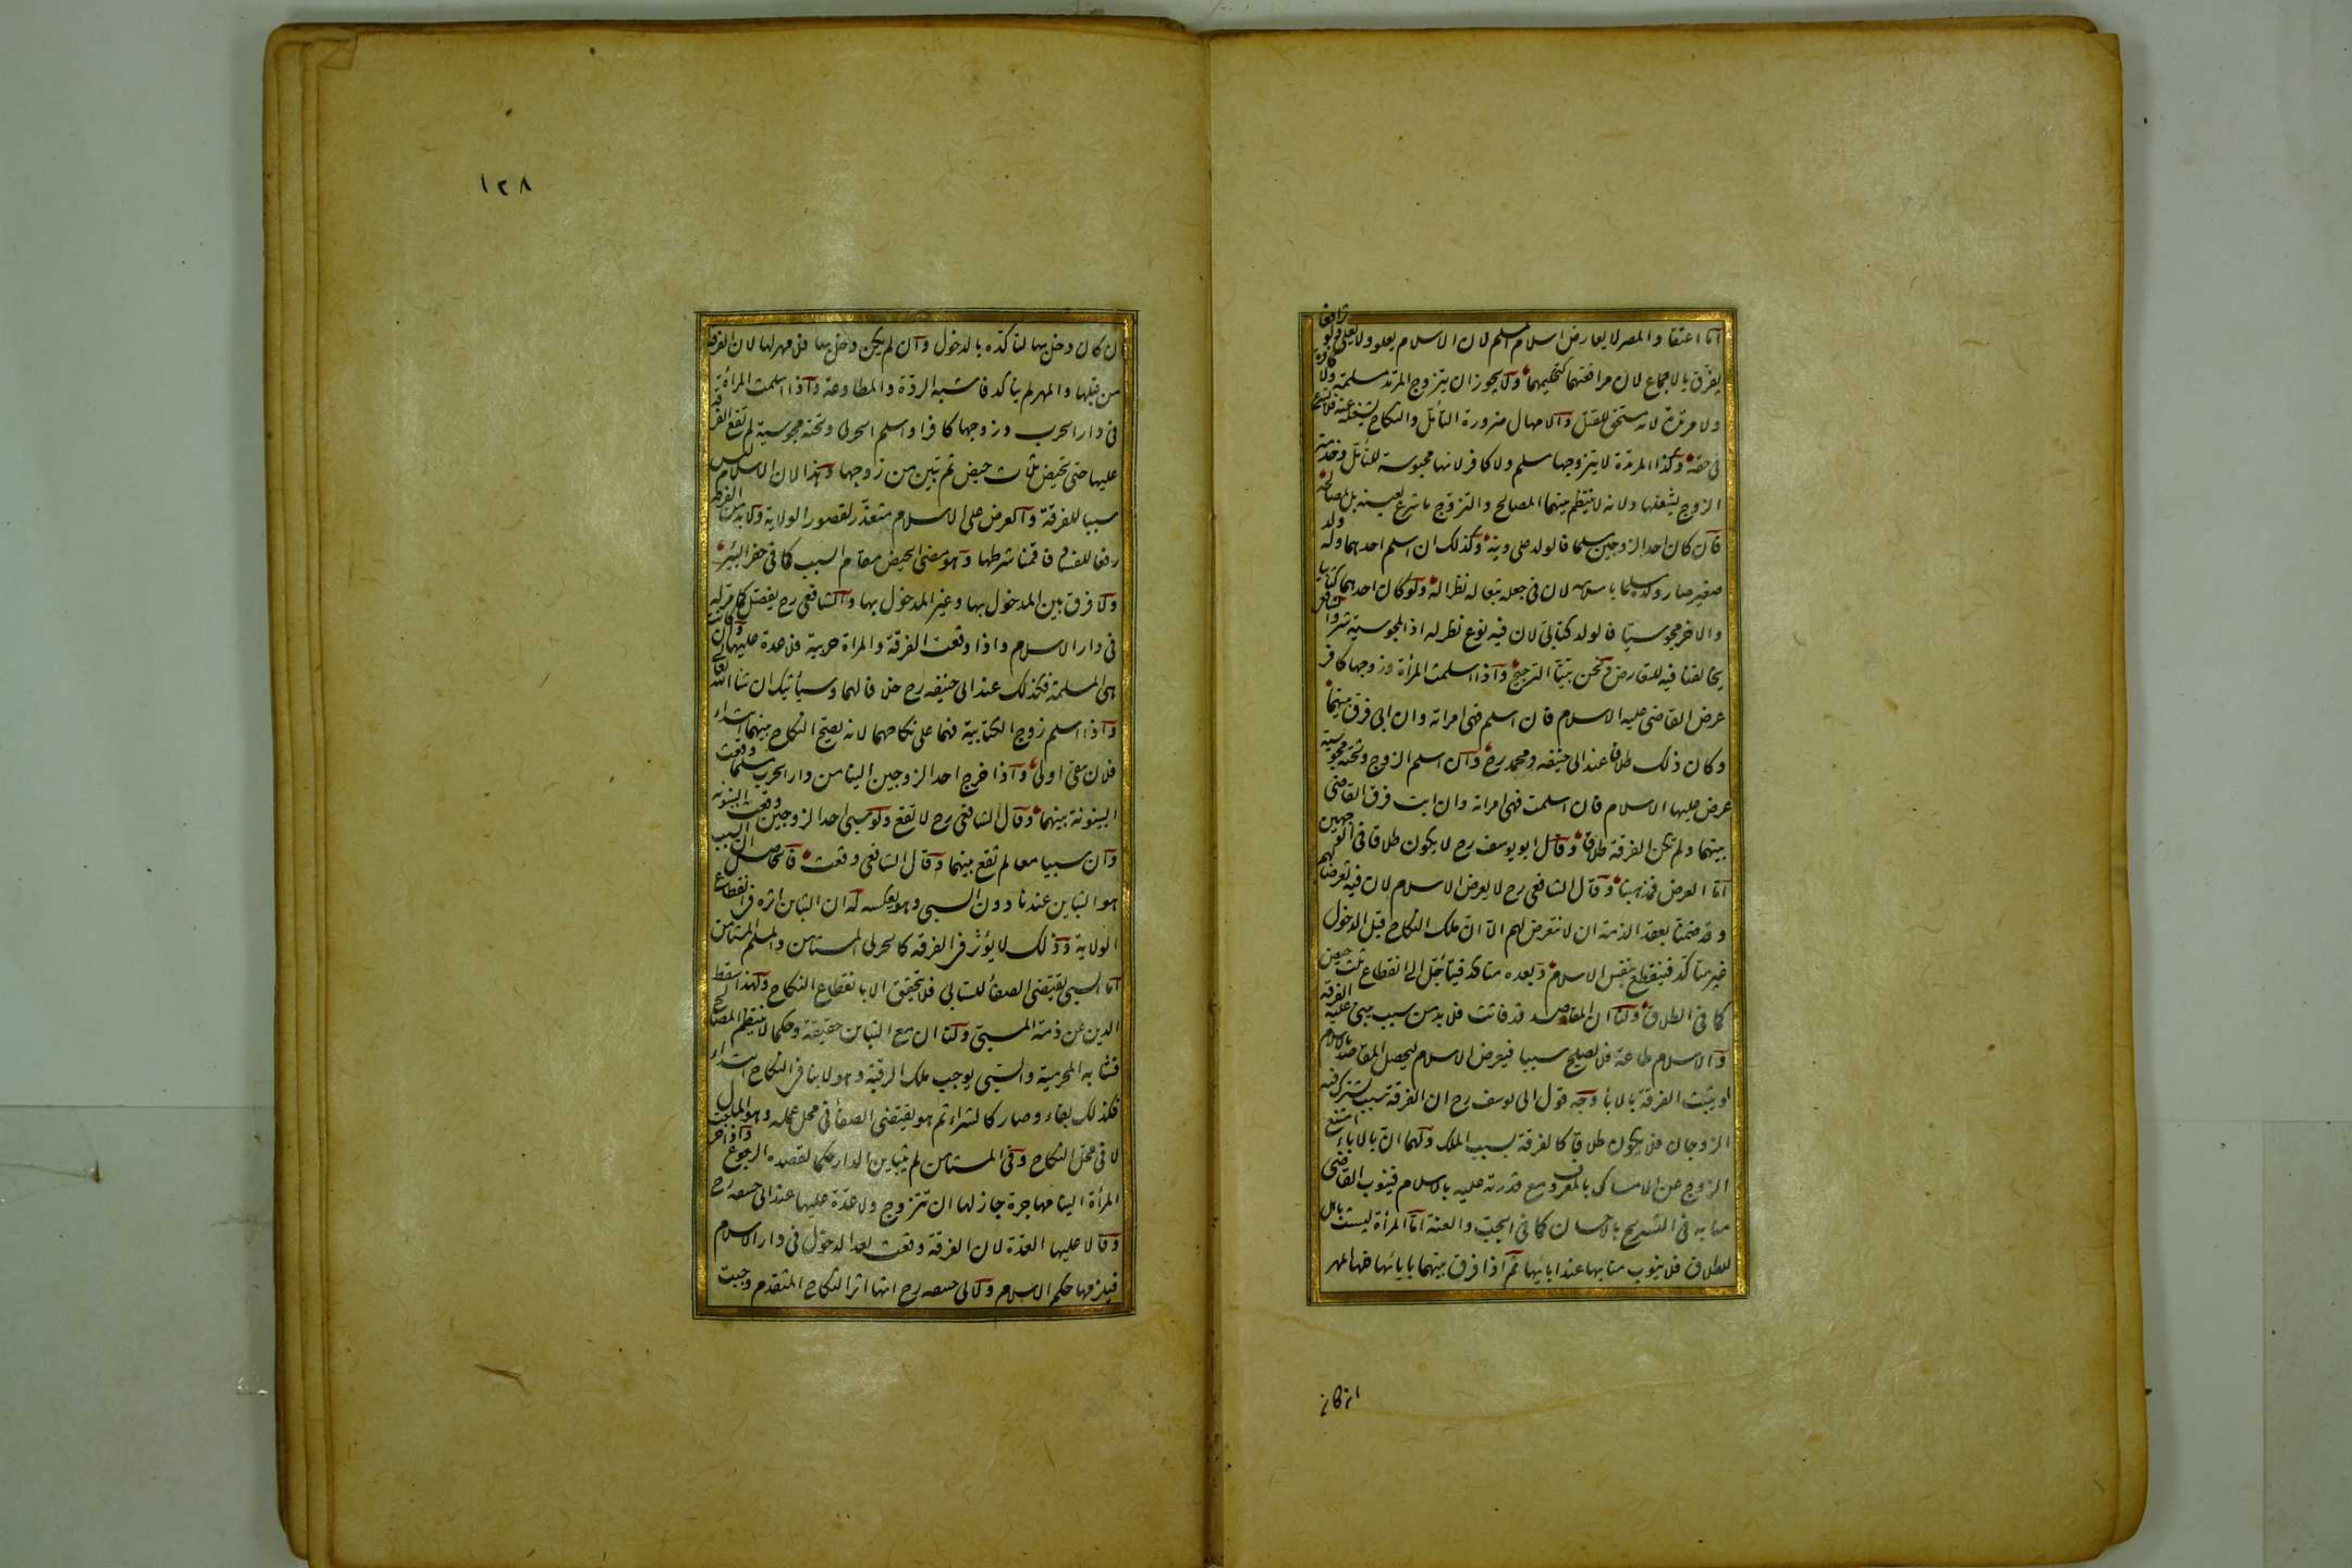 اما اعتقاد المصر لا يعارض اسلام المسلم لان الاسلام يعلو ولا يعلى ولو ترافعا
يفرق بالاجماع لان مرافعتهما كتحكيمهما ولا يجوز ان يتزوج المرتد مسلمة ولا كافرة
ولا مرتدة لانه مستحق للقتل والامهال ضرورة التأمل والنكاح يشغله عنه فلا يشرع
في حقه وكذا المرتدة لا يتزوجها مسلم ولا كافر لانها محبوسة للتأمل وخدمة
الزوج يشغلها ولانه لا ينتظم بينهما المصالح والتزوج ما شرع لعينه بل لمصالحه
فان كان احد الزوجين مسلما فالولد على دينه وكذلك ان اسلم احدهما وله ولد
صغير صار ولده مسلما باسلامه لان في جعله تبعا له نظرا له ولو كان احدهما كتابيا
والاخر مجوسيا فالولد كتابي لان فيه نوع نظر له اذ المجوسية شر والشافعي
يخالفنا فيه للتعارض ونحن بينا الترجيح واذا اسلمت المرأة وزوجها كافر
عرض القاضي عليه الاسلام فان اسلم فهي امراته وان ابى فرق بينهما
وكان ذلك طلاقا عند ابي حنيفه ومحمد رح وان اسلم الزوج وتحته مجوسية
عرض عليها الاسلام فان اسلمت فهي امراته وان ابت فرق القاضي
بينهما ولم تكن الفرقة طلاقا وقال ابو يوسف رح لا يكون طلاقا في الوجهين
اما العرض فمذهبنا وقال الشافعي رح لا يعرض الاسلام لان فيه تعرضا لهم
وقد ضمنا بعقد الذمة ان لا نتعرض لهم الا ان ملك النكاح قبل الدخول
غير متأكد فينقطع بنفس الاسلام وبعده متأكد فيتأجل الى انقطاع ثلث حيض
كما في الطلاق ولنا ان المقاصد قد فاتت فلا بد من سبب يبتني عليه الفرقة
والاسلام طاعة فلا يصلح سببا فيعرض الاسلام ليحصل المقاصد بالاسلام
او يثبت الفرقة بالاباء وجه قول ابي يوسف رح ان الفرقة بسبب يشترك فيه
الزوجان فلا يكون طلاقا كالفرقة بسبب الملك ولهما ان بالاباء امتنع
الزوج عن الامساك بالمعروف مع قدرته عليه بالاسلام فينوب القاضي
منابه في التسريح بالاحسان كما في الجب والعنة اما المرأة ليست باهل
للطلاق فلا ينوب منابها عند ابائها ثم اذا فرق بينهما بابائها فلها المهر
ان كان
١٢٨
ان كان دخل بها لتأكده بالدخول وان لم يكن دخل بها فلا مهر لها لان الفرقة
من قبلها والمهر لم يتأكد فاشبه الردة والمطاوعة واذا اسلمت المرأة
في دار الحرب وزوجها كافر او اسلم الحربي وتحته مجوسية لم تقع الفرقة
عليها حتى تحيض ثلاث حيض ثم تبين من زوجها وهذا لان الاسلام ليس
سببا للفرقة والعرض على الاسلام متعذر لقصور الولاية ولا بد من الفرقة
رفعا للفساد فاقمنا شرطها وهو مضي الحيض مقام السبب كما في حفر البئر
ولا فرق بين المدخول بها وغير المدخول بها والشافعي رح يفصل كما مر له
في دار الاسلام واذا وقعت الفرقة والمراة حربية فلا عدة عليها وان كانت
هي المسلمة فكذلك عند ابي حنيفه رح خلافا لهما وسيأتيك ان شا الله تعالى
واذا اسلم زوج الكتابية فهما على نكاحهما لانه يصح النكاح بينهما ابتداء
فلان يبقى اولى واذا خرج احد الزوجين الينا من دار الحرب مسلما وقعت
البينونة بينهما وقال الشافعي رح لا تقع ولو سبي احد الزوجين وقعت البينونة
وان سبيا معا لم تقع بينهما وقال الشافعي وقعت فالحاصل ان السبب
هو التباين عندنا دون السبي وهو بعكسه له ان التباين اثره في انقطاع
الولاية وذلك لا يؤثر في الفرقة كالحربي المستامن والمسلم المستامن
اما السبي يقتضي الصفا للسابي فلا يتحقق الا بانقطاع النكاح ولهذا يسقط
الدين عن ذمة المسبي ولنا ان مع التباين حقيقة وحكما لا ينتظم المصالح
فشابه المحرمية والسبي يوجب ملك الرقبة وهو لا ينافي النكاح ابتداء
فكذلك بقاء وصار كالشراء ثم هو يقتضي الصفا في محل عمله وهو المال
لا في محل النكاح وفي المستامن لم يتباين الدار حكما لقصده الرجوع واذا خرجت
المرأة الينا مهاجرة جاز لها ان تتزوج ولا عدة عليها عند ابي حنيفه رح
وقالا عليها العدة لان الفرقة وقعت بعد الدخول في دار الاسلام
فيلزمها حكم الاسلام ولابي حنيفه رح انها اثر النكاح المتقدم وجبت